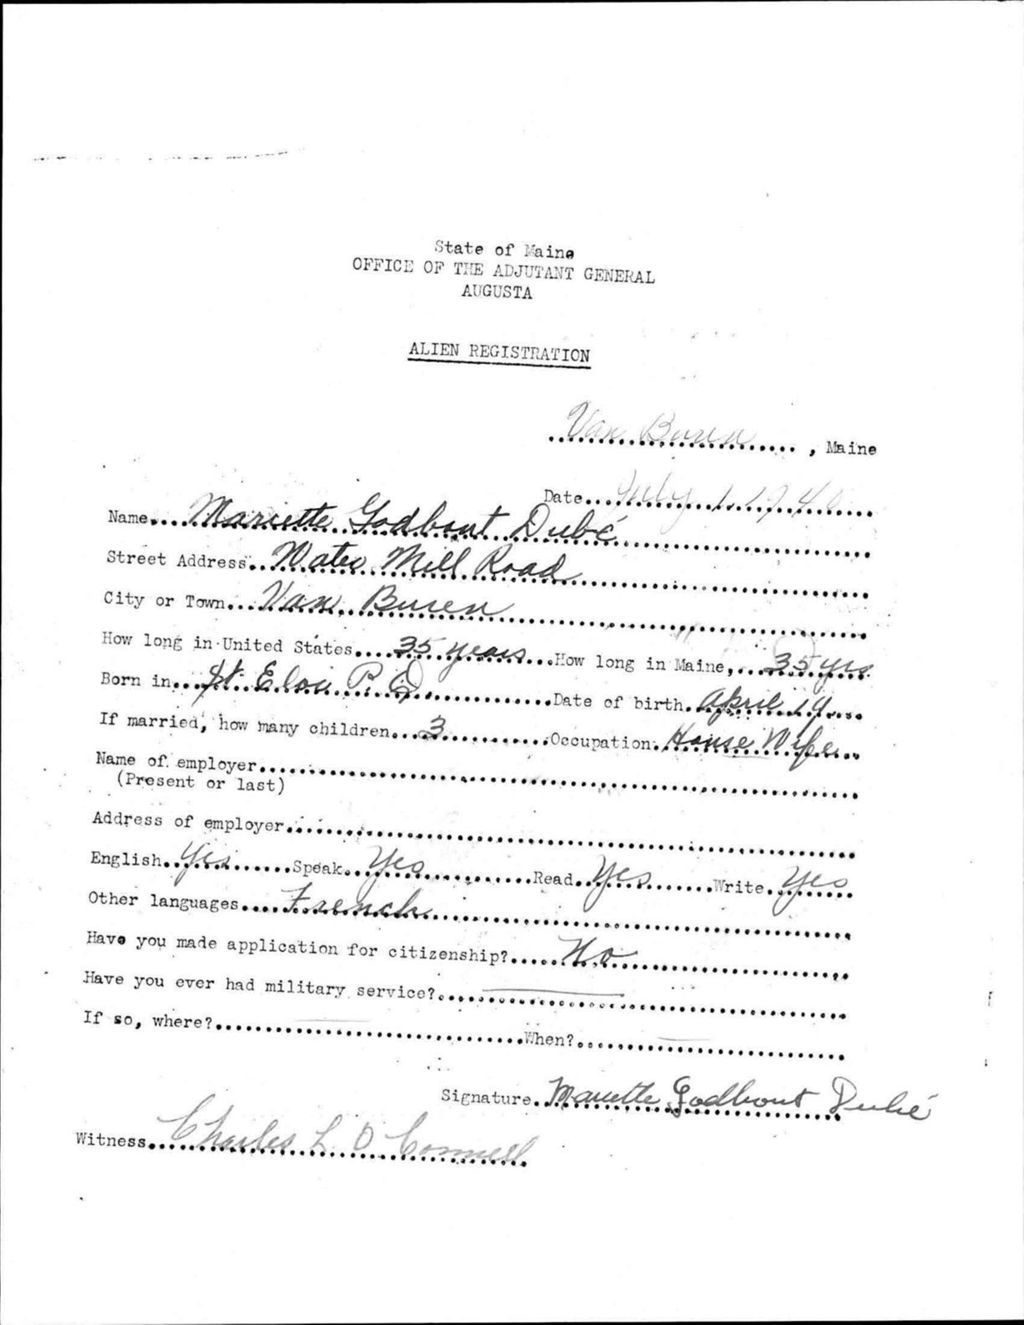 State of Maine
OFFICE OF THE ADJUTANT GENERAL
AUGUSTA
ALIEN REGISTRATION
Van Buren, Maine
Date July 1, 1940
Name Mariette Godbout Dubé
Street Address Water Mill Road
City or Town Van Buren
How long in United States 35 years How long in Maine, 35 yrs
Born in St. Eloi P. Q Date of birth April 19
If married, how many children 3 Occupation House Wife
Name of employer
(Present or last)
Address of employer
English Yes Speak Yes Read Yes Write Yes
Other languages French
Have you made application for citizenship? No
Have you ever had military service?
If so, where? When?
Signature Mariette Godbout Dubé
Witness Charles L O Connell